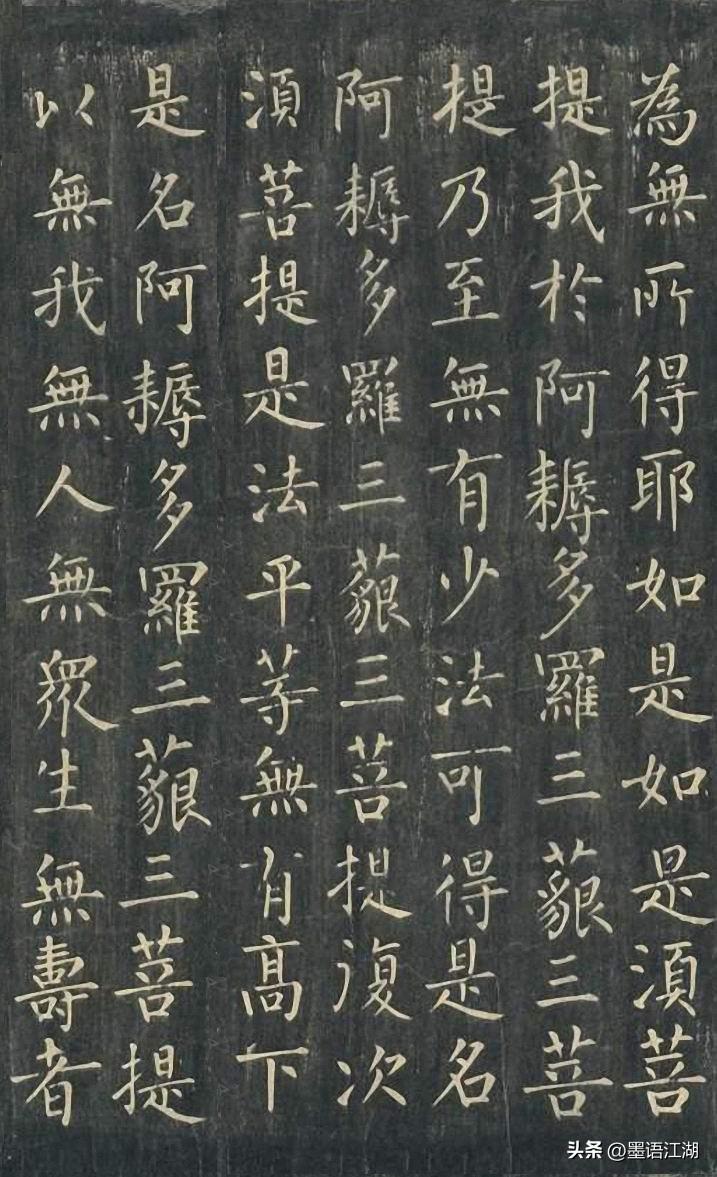 為無所得耶如是如是須菩
提我於阿耨多羅三藐三菩
提乃至無有少法可得是名
阿耨多羅三藐三菩提復次
須菩提是法平等無有高下
是名阿耨多羅三藐三菩提
以無我無人無眾生無壽者
头条 @墨语江湖